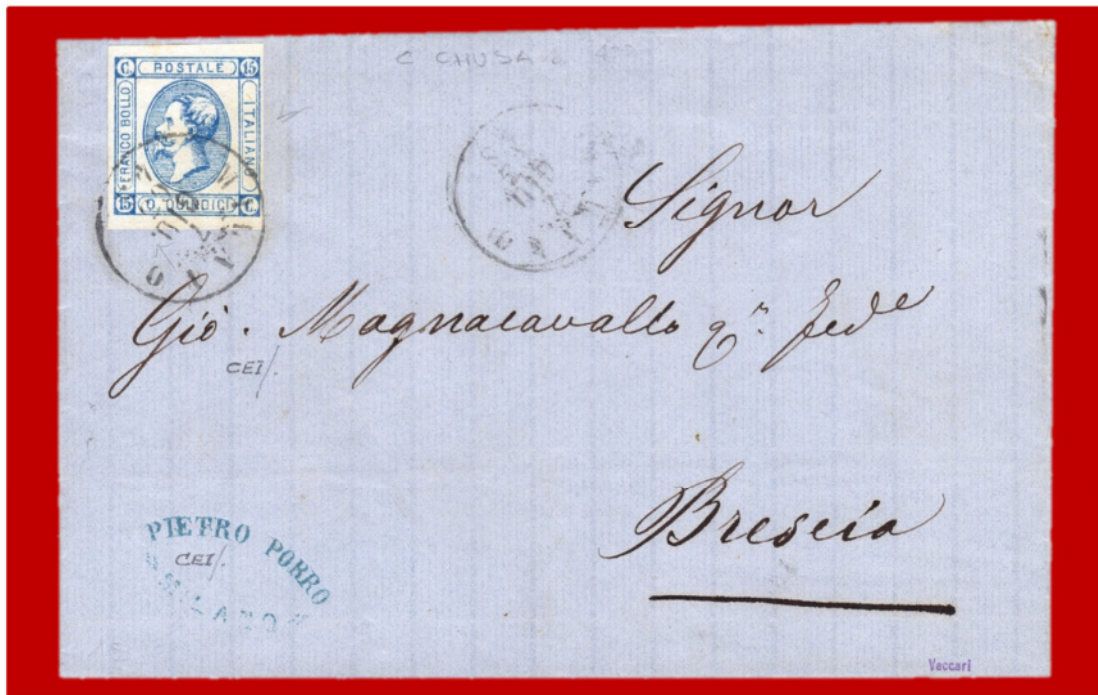 C. POSTALE 15
FRANCO BOLLO
ITALIANO
15 C. QUINDICI C.
MILANO
C CHIUSA
Signor
Giò. Magnacavallo q.m fede
CEI/.
Brescia
PIETRO PORRO
CEI/.
MILANO
Vaccari